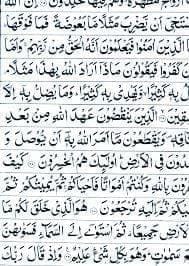 مُّطَهَّرَةٌ وَّهُمْ فِيْهَا خٰلِدُوْنَ
سْتَحْيٖۤ اَنْ يَّضْرِبَ مَثَلًا مَّا بَعُوْضَةً فَمَا فَوْقَهَا
الَّذِيْنَ اٰمَنُوْا فَيَعْلَمُوْنَ اَنَّهُ الْحَقُّ مِنْ رَّبِّهِمْ وَاَمَّا
كَفَرُوْا فَيَقُوْلُوْنَ مَاذَاۤ اَرَادَ اللّٰهُ بِهٰذَا مَثَلًا
لُّ بِهٖ كَثِيْرًا وَّيَهْدِيْ بِهٖ كَثِيْرًا وَمَا يُضِلُّ بِهٖۤ اِلَّا
سِقِيْنَ الَّذِيْنَ يَنْقُضُوْنَ عَهْدَ اللّٰهِ مِنْۢ بَعْدِ
قِهٖ وَيَقْطَعُوْنَ مَاۤ اَمَرَ اللّٰهُ بِهٖۤ اَنْ يُّوْصَلَ وَ
دُوْنَ فِي الْاَرْضِ اُولٰٓئِكَ هُمُ الْخٰسِرُوْنَ كَيْفَ
رُوْنَ بِاللّٰهِ وَكُنْتُمْ اَمْوَاتًا فَاَحْيَاكُمْ ثُمَّ يُمِيْتُكُمْ ثُمَّ
كُمْ ثُمَّ اِلَيْهِ تُرْجَعُوْنَ هُوَ الَّذِيْ خَلَقَ لَكُمْ مَّا
رْضِ جَمِيْعًا ثُمَّ اسْتَوٰۤى اِلَى السَّمَآءِ فَسَوّٰىهُنَّ
سَمٰوٰتٍ وَهُوَ بِكُلِّ شَيْءٍ عَلِيْمٌ وَاِذْ قَالَ رَبُّكَ